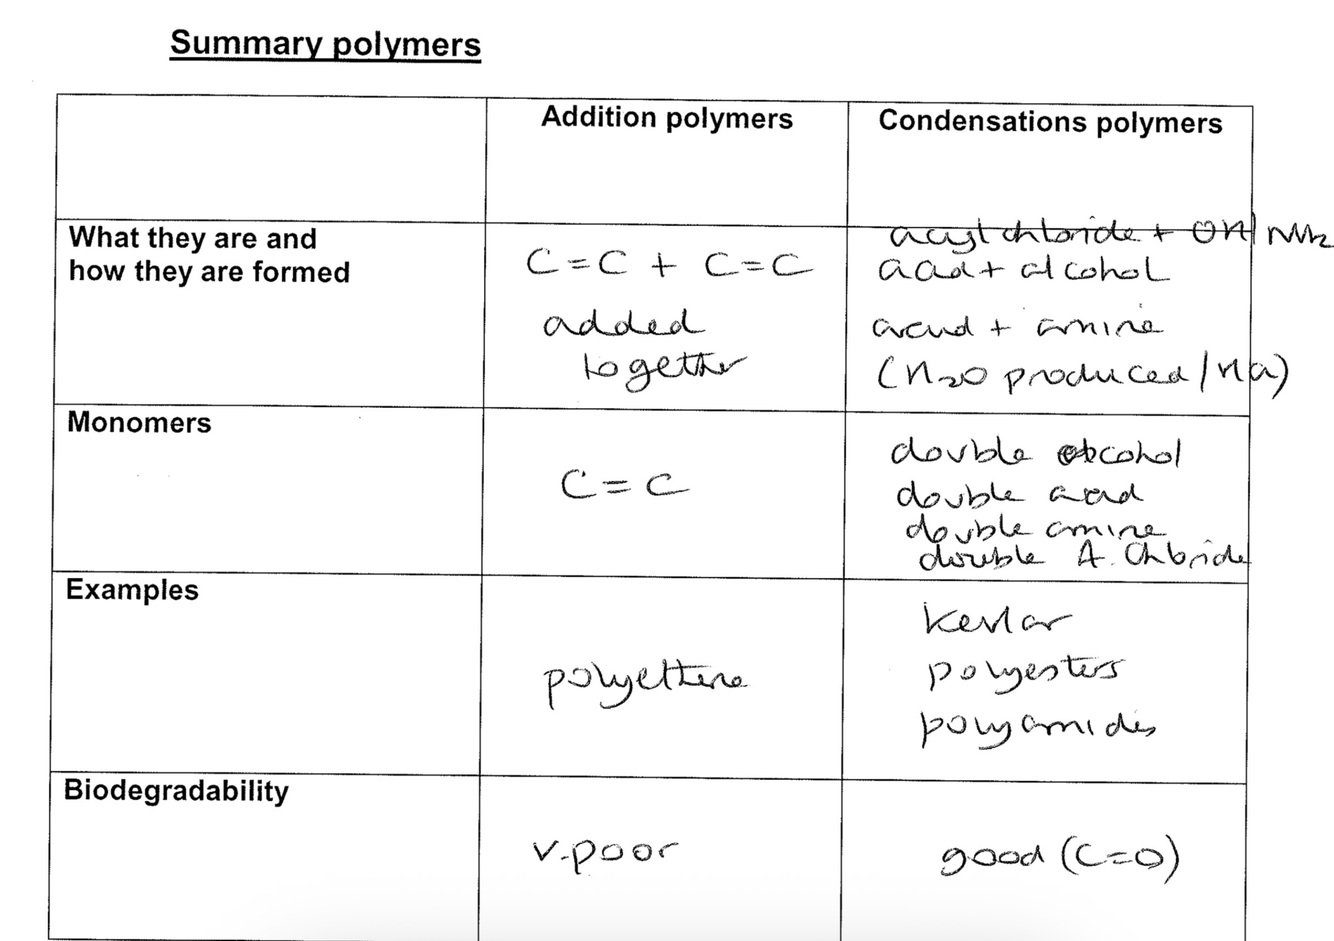 Summary polymers
Addition polymers
Condensations polymers
What they are and
how they are formed
C=C + C=C
added
together
acyl chloride + OH/NH2
acid + alcohol
acid + amine
(H2O produced/HCl)
Monomers
C=C
double alcohol
double acid
double amine
double A. Chloride
Examples
polyethene
Kevlar
polyesters
polyamides
Biodegradability
v.poor
good (C=O)